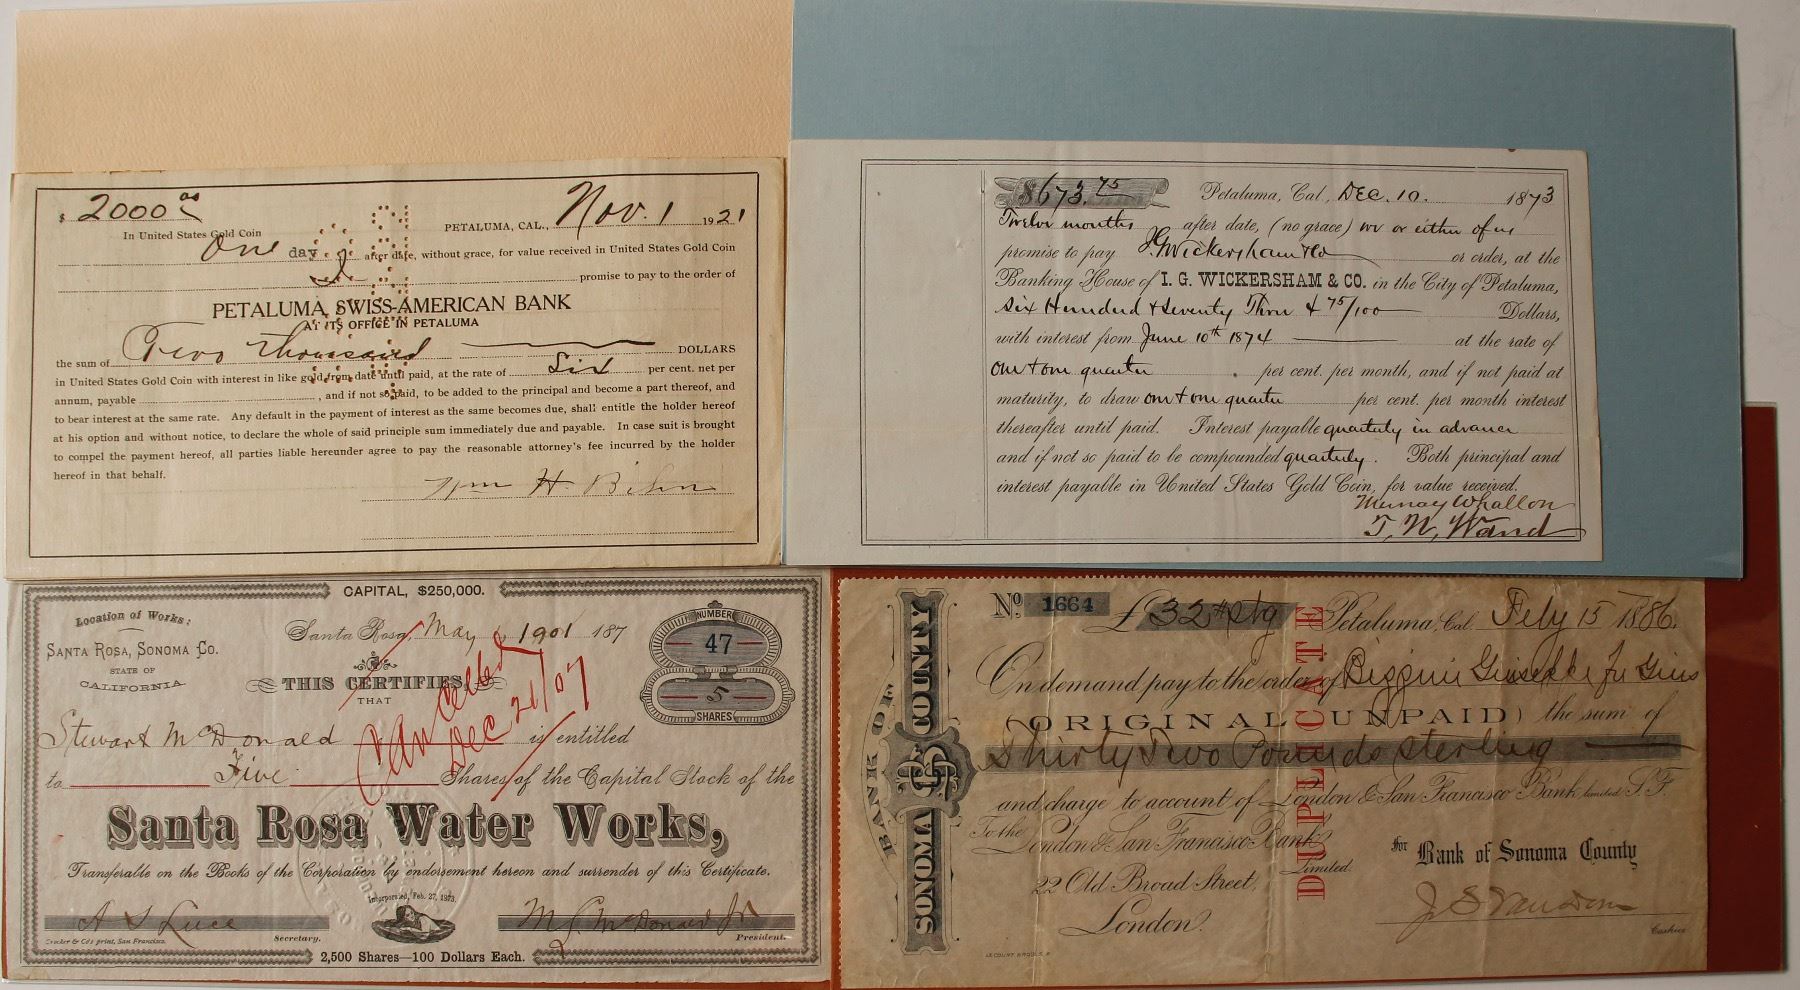 $ 2000 00
In United States Gold Coin
PETALUMA, CAL., Nov. 1 1921
One day after date, without grace, for value received in United States Gold Coin
I promise to pay to the order of
PETALUMA SWISS-AMERICAN BANK
AT ITS OFFICE IN PETALUMA
the sum of Two Thousand DOLLARS
in United States Gold Coin with interest in like gold from date until paid, at the rate of Six per cent. net per
annum, payable , and if not so paid, to be added to the principal and become a part thereof, and
to bear interest at the same rate. Any default in the payment of interest as the same becomes due, shall entitle the holder hereof
at his option and without notice, to declare the whole of said principle sum immediately due and payable. In case suit is brought
to compel the payment hereof, all parties liable hereunder agree to pay the reasonable attorney's fee incurred by the holder
hereof in that behalf.
Wm H.
$673.75 Petaluma, Cal., DEC. 10. 1873
Twelve months after date, (no grace) we or either of us
promise to pay I G Wickersham & Co or order, at the
Banking House of I. G. WICKERSHAM & CO. in the City of Petaluma,
Six Hundred & Seventy Three & 75/100 Dollars,
with interest from June 10th 1874 at the rate of
one & one quarter per cent. per month, and if not paid at
maturity, to draw one & one quarter per cent. per month interest
thereafter until paid. Interest payable quarterly in advance
and if not so paid to be compounded quarterly. Both principal and
interest payable in United States Gold Coin, for value received.
Murray Whallon
T. N. Wand
CAPITAL, $250,000.
Location of Works:
SANTA ROSA, SONOMA CO.
STATE OF
CALIFORNIA
Santa Rosa, May 1 1901 187
NUMBER
47
5
SHARES
THIS CERTIFIES
THAT
Cancelled
Dec 21/07
Stewart McDonald is entitled
to Five Shares of the Capital Stock of the
Santa Rosa Water Works,
Transferable on the Books of the Corporation by endorsement hereon and surrender of this Certificate.
Incorporated, Feb. 27, 1873.
A S Luce
Secretary.
M L McDonald Jr
President.
Crocker & Co's print, San Francisco.
2,500 Shares—100 Dollars Each.
BANK OF
SONOMA COUNTY
No. 1664 £32 # Stg Petaluma, Cal. Feby 15 1886.
DUPLICATE
On demand pay to the order of
(ORIGINAL UNPAID) the sum of
Thirty Two Pounds sterling
and charge to account of London & San Francisco Bank limited S.F.
To the
London & San Francisco Bank
Limited.
22 Old Broad Street,
London.
for Bank of Sonoma County
Cashier